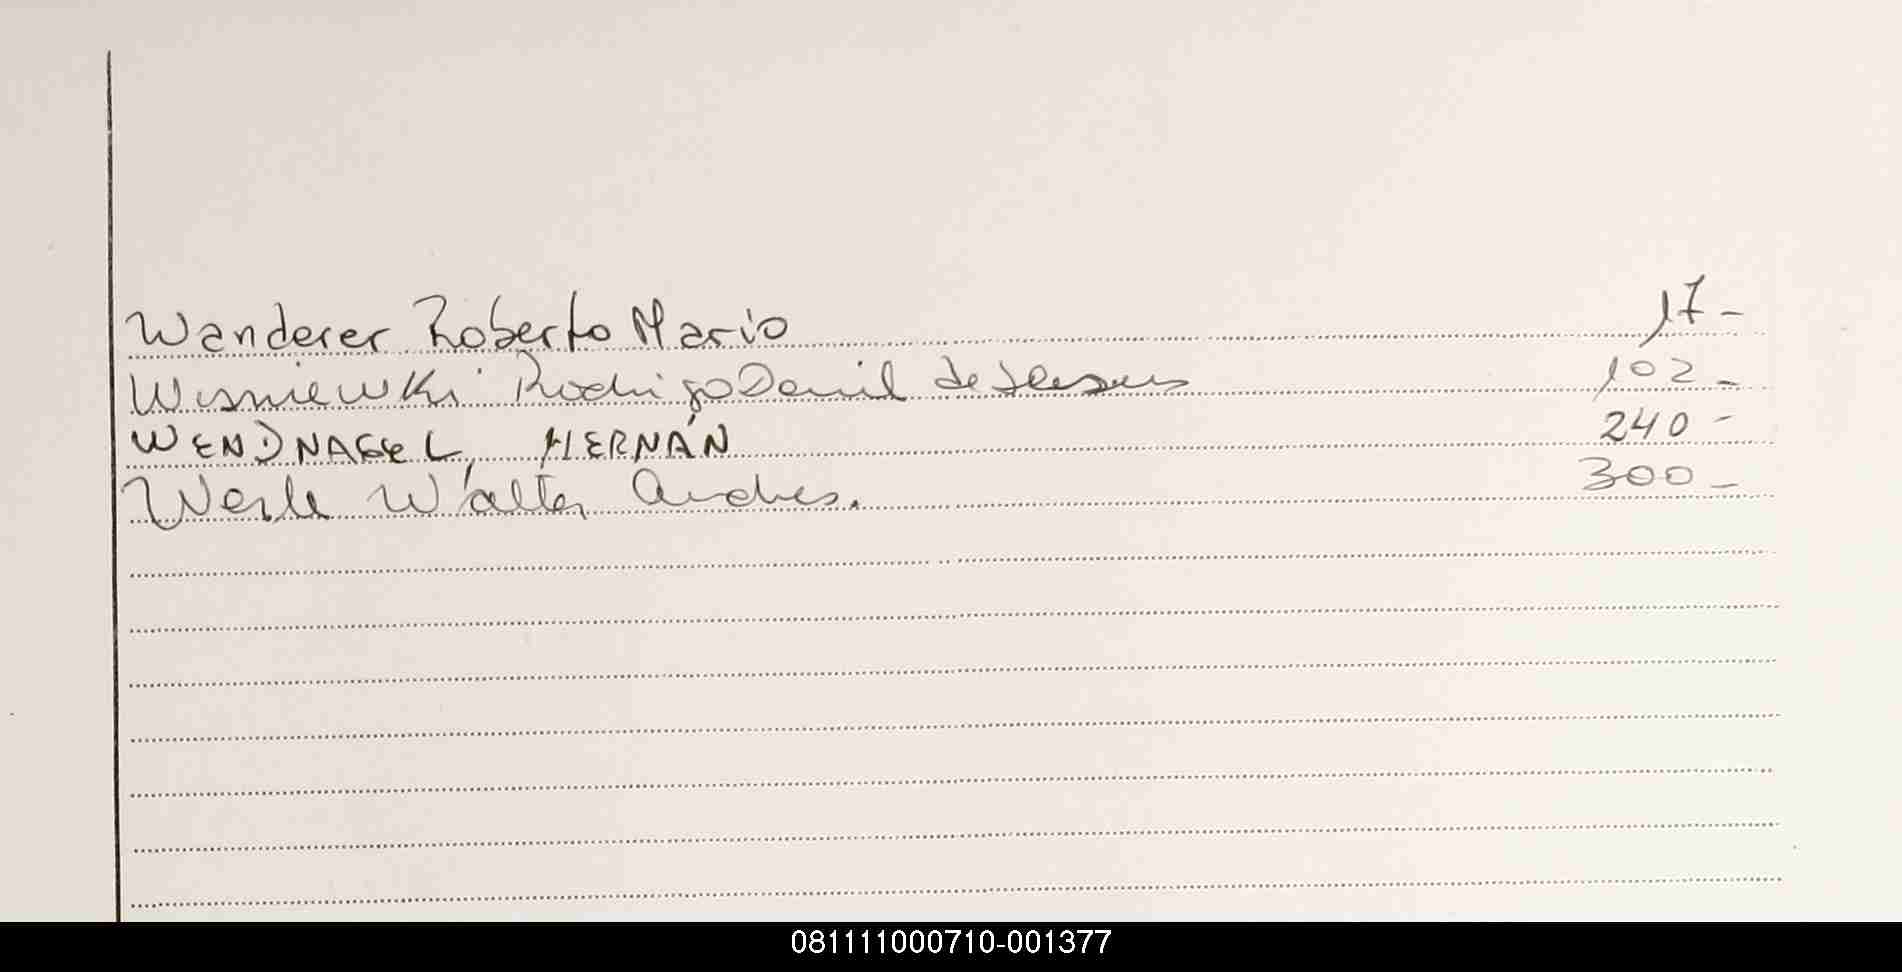 Wanderer Roberto Mario 17-
Wisniewski Rodrigo Daniel de Jesus 102-
WENDNAGEL, HERNÁN 240-
Werle Walter Andres. 300-
081111000710-001377